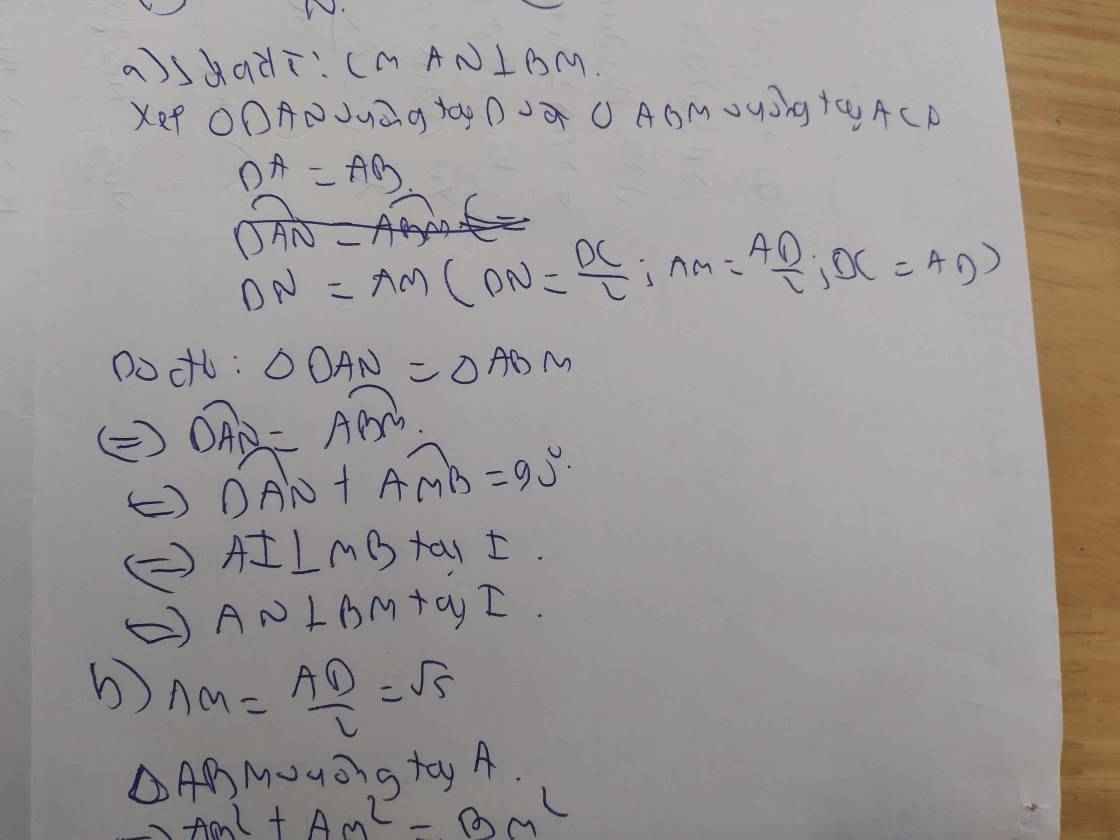 N.
CM AN⊥BM.
Xét ΔDAN vuông tại D và Δ ABM vuông tại A Có
DA = AB.
DAN = ABM
DN = AM ( DN = DC/2 ; AM = AD/2 ; DC = AD )
Do đó : Δ DAN = Δ ABM
(=) DAN = ABM.
(=) DAN + AMB = 90°.
(=) AI ⊥ MB tại I .
(=) AN ⊥ BM tại I .
b) AM = AD/2 = √5
Δ ABM vuông tại A .
=) AM² + AM² = BM²